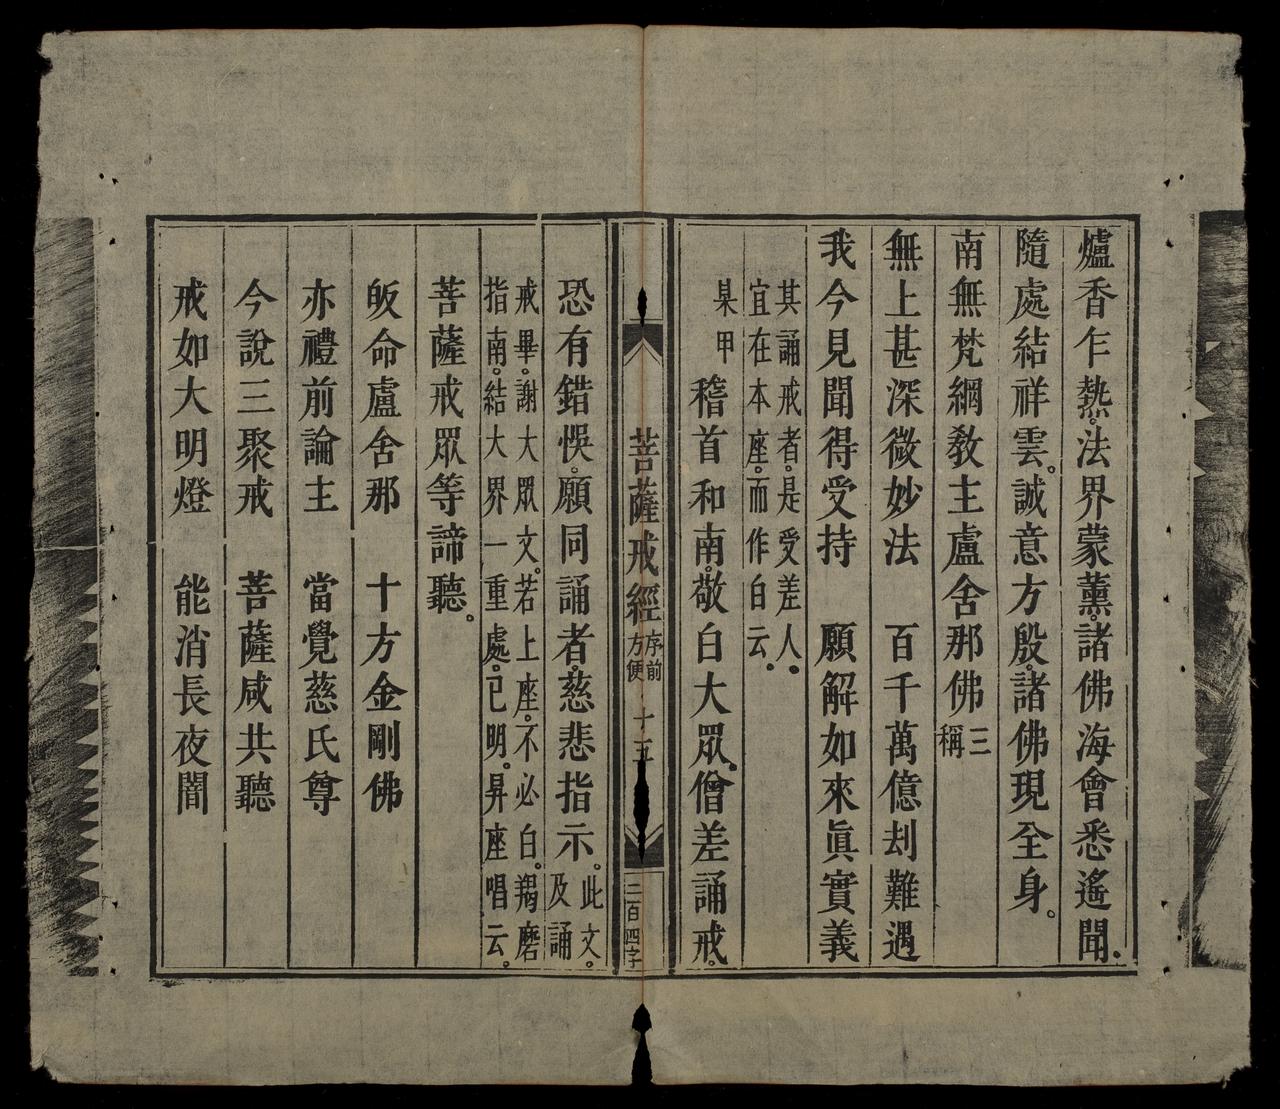 爐香乍熱。法界蒙薰。諸佛海會悉遙聞。
隨處結祥雲。誠意方殷。諸佛現全身。
南無梵網教主盧舍那佛三稱
無上甚深微妙法　百千萬億刦難遇
我今見聞得受持　願解如來眞實義
其誦戒者。是受差人。
宜在本座。而作白云。
杲甲　稽首和南。敬白大眾。僧差誦戒。
菩薩戒經　序前方便　十五　二百四字
恐有錯悞。願同誦者。慈悲指示。此文。及誦
戒畢。謝大眾文。若上座。不必白。羯磨
指南。結大界一重處。已明。昇座唱云。
菩薩戒眾等諦聽。
皈命盧舍那　十方金剛佛
亦禮前論主　當覺慈氏尊
今說三聚戒　菩薩咸共聽
戒如大明燈　能消長夜闇